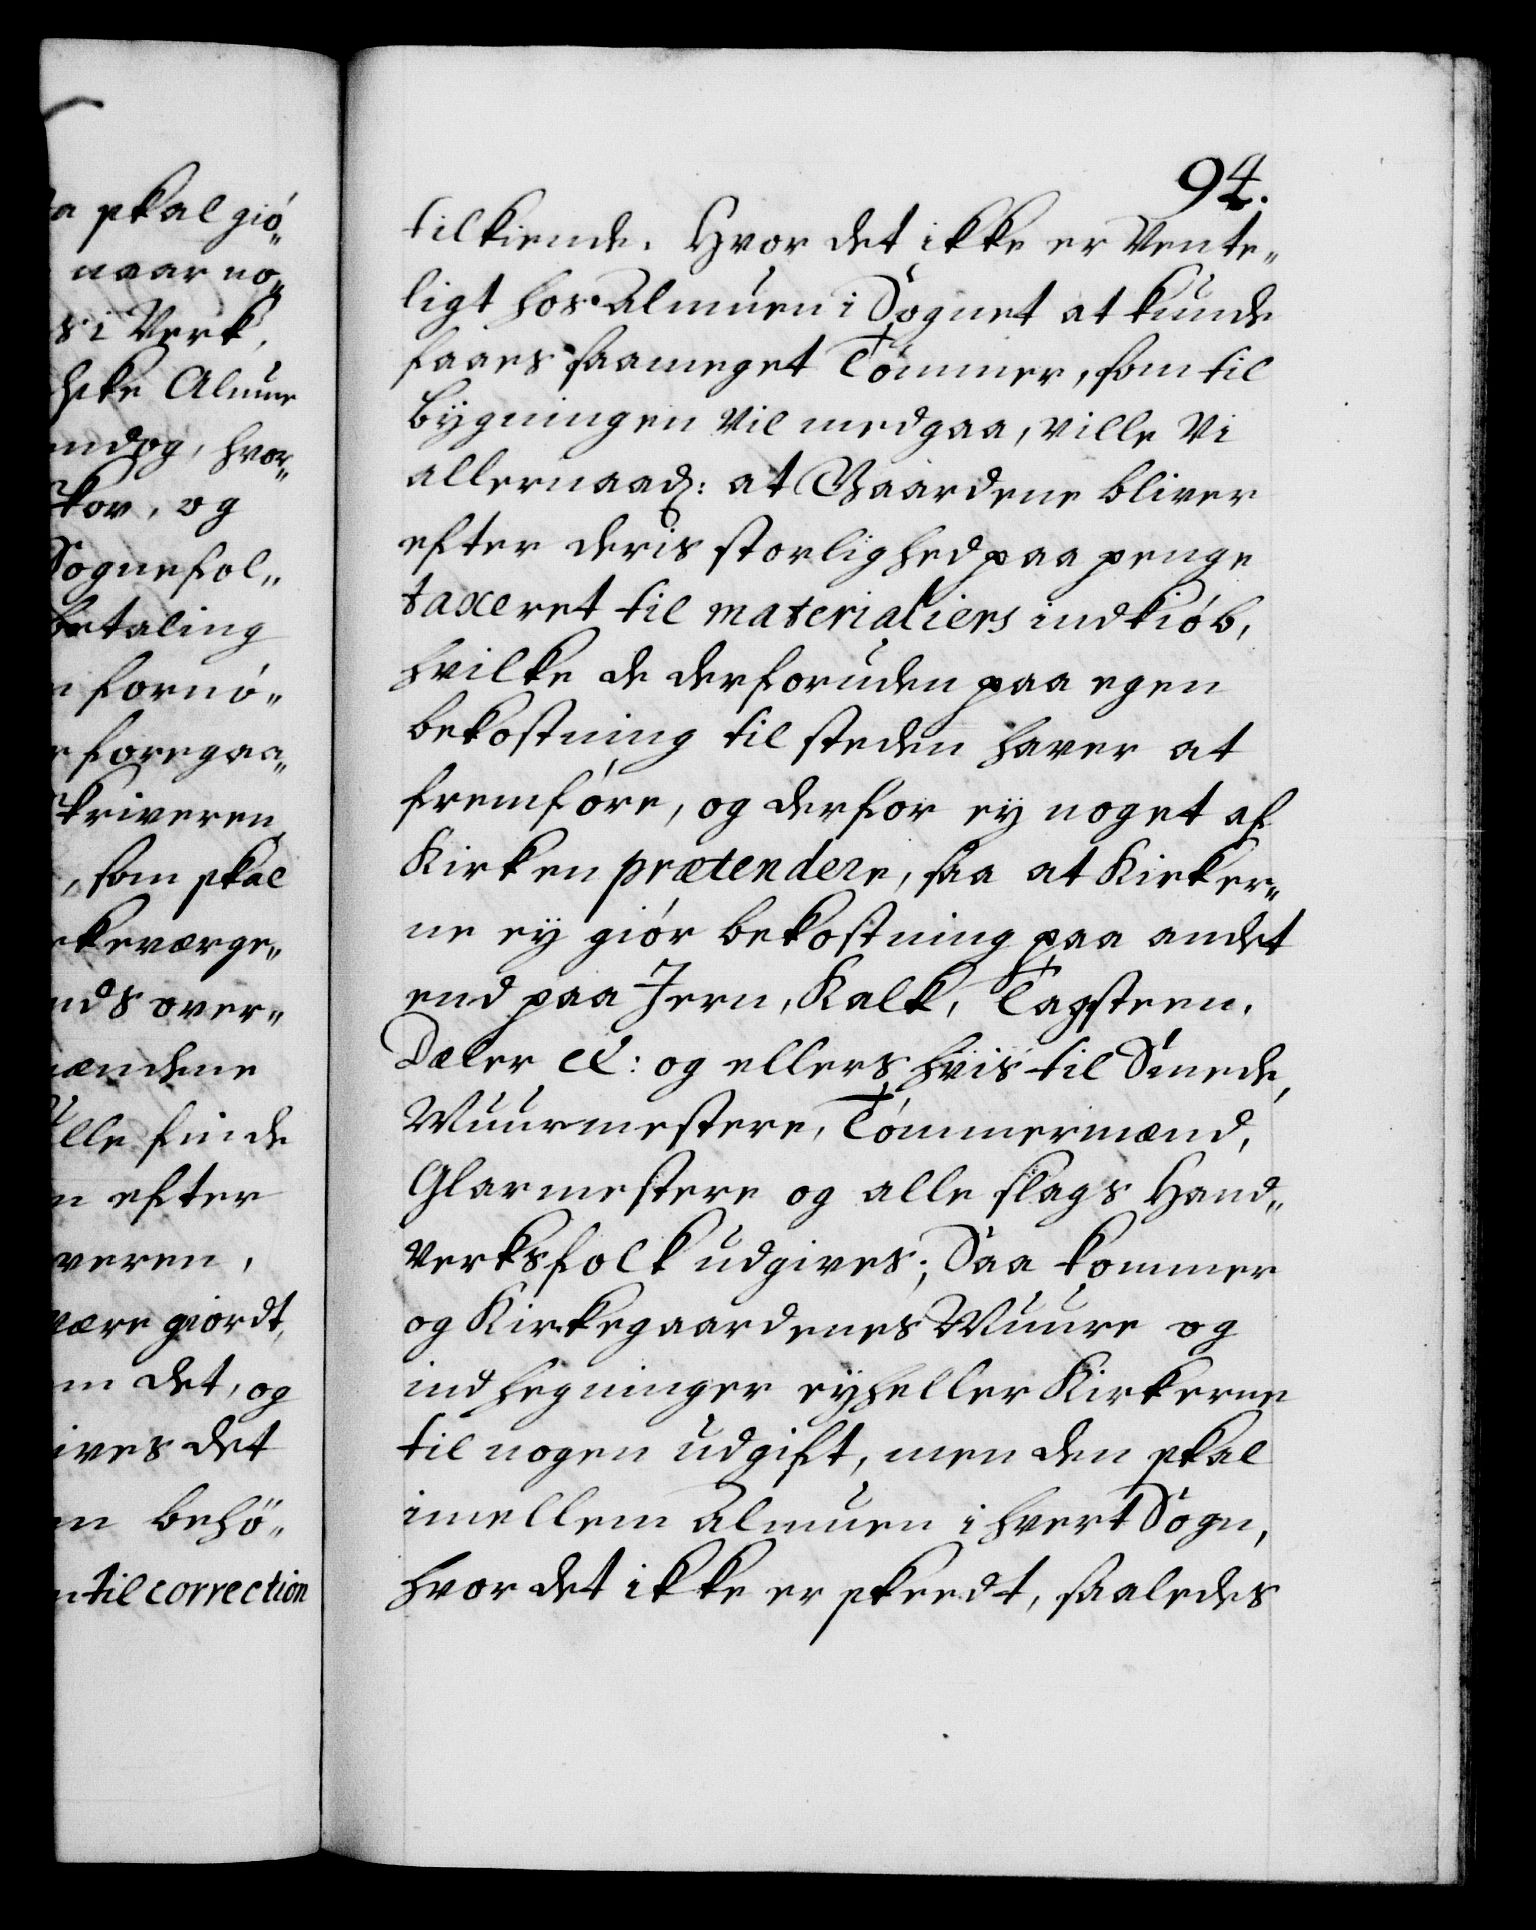 a skal giö„
naar no„
s i Verk,
Almue
endog, hvor„
skov, og
Sognefol„
betaling
fornö„
foregaa„
skriveren
, som skal
rkeværge„
nds over„
mændene
ville finde
n efter
veren,
være giordt,
m det, og
ives det
behö„
n til correction
94.
tilkiende. Hvor det ikke er Vente„
ligt hos Almuen i Sognet at kunde
faaes saameget Tömmer, som til
bygningen vil medgaa, ville Vi
allernaad: at Gaardene bliver
efter deris storlighed paa penge
taxeret til materialiers indkiöb,
hvilke de derforuden paa egen
bekostning til steden haver at
fremföre, og derfor ey noget af
Kirken prætendere, saa at Kirker„
ne ey giör bekostning paa andet
end paa Jern, Kalk, Tagsteen,
Dæler &: og ellers hvis til Smede,
Muurmestere, Tömmermænd,
Glarmestere og alle slags Hand„
verksfolk udgives; Saa kommer
og Kirkegaardenes Muure og
indhegninger ey heller Kirkerne
til nogen udgift, men den skal
imellem Almuen i hvert Sogn,
hvor det ikke er skeedt, saaledes